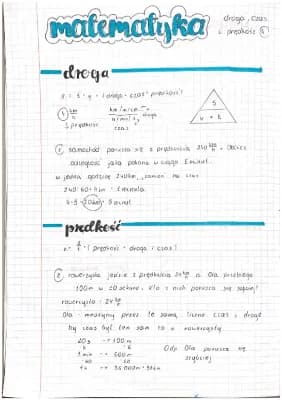 matematyka
droga, czas
i prędkość
droga
s = v · t - " droga = czas · prędkość "
km/h
km/m/cm
droga
prędkość
czas
s
v · t
1 samochód porusza się z prędkością 240 km/h. Oblicz
odległość jaką pokona w ciągu 5 minut.
w jedną godzinę 240km, zamień na czas
240 : 60 = 4km - 1 minuta
4 · 5 = 20km - 5 minut
prędkość
v = s/t - " prędkość = droga : czas "
2 rowerzysta jedzie z prędkością 24 km/h. Ola przebiegła
100m w 10 sekund. Kto z nich porusza się szybciej?
rowerzysta : 24 km/h
Ola - mnożymy przez tę samą liczbę czas i drogę
by czas był ten sam co u rowerzysty
10s → 100m
1 min → 600m
1h → 36 000m = 36km
Odp. Ola porusza się
szybciej